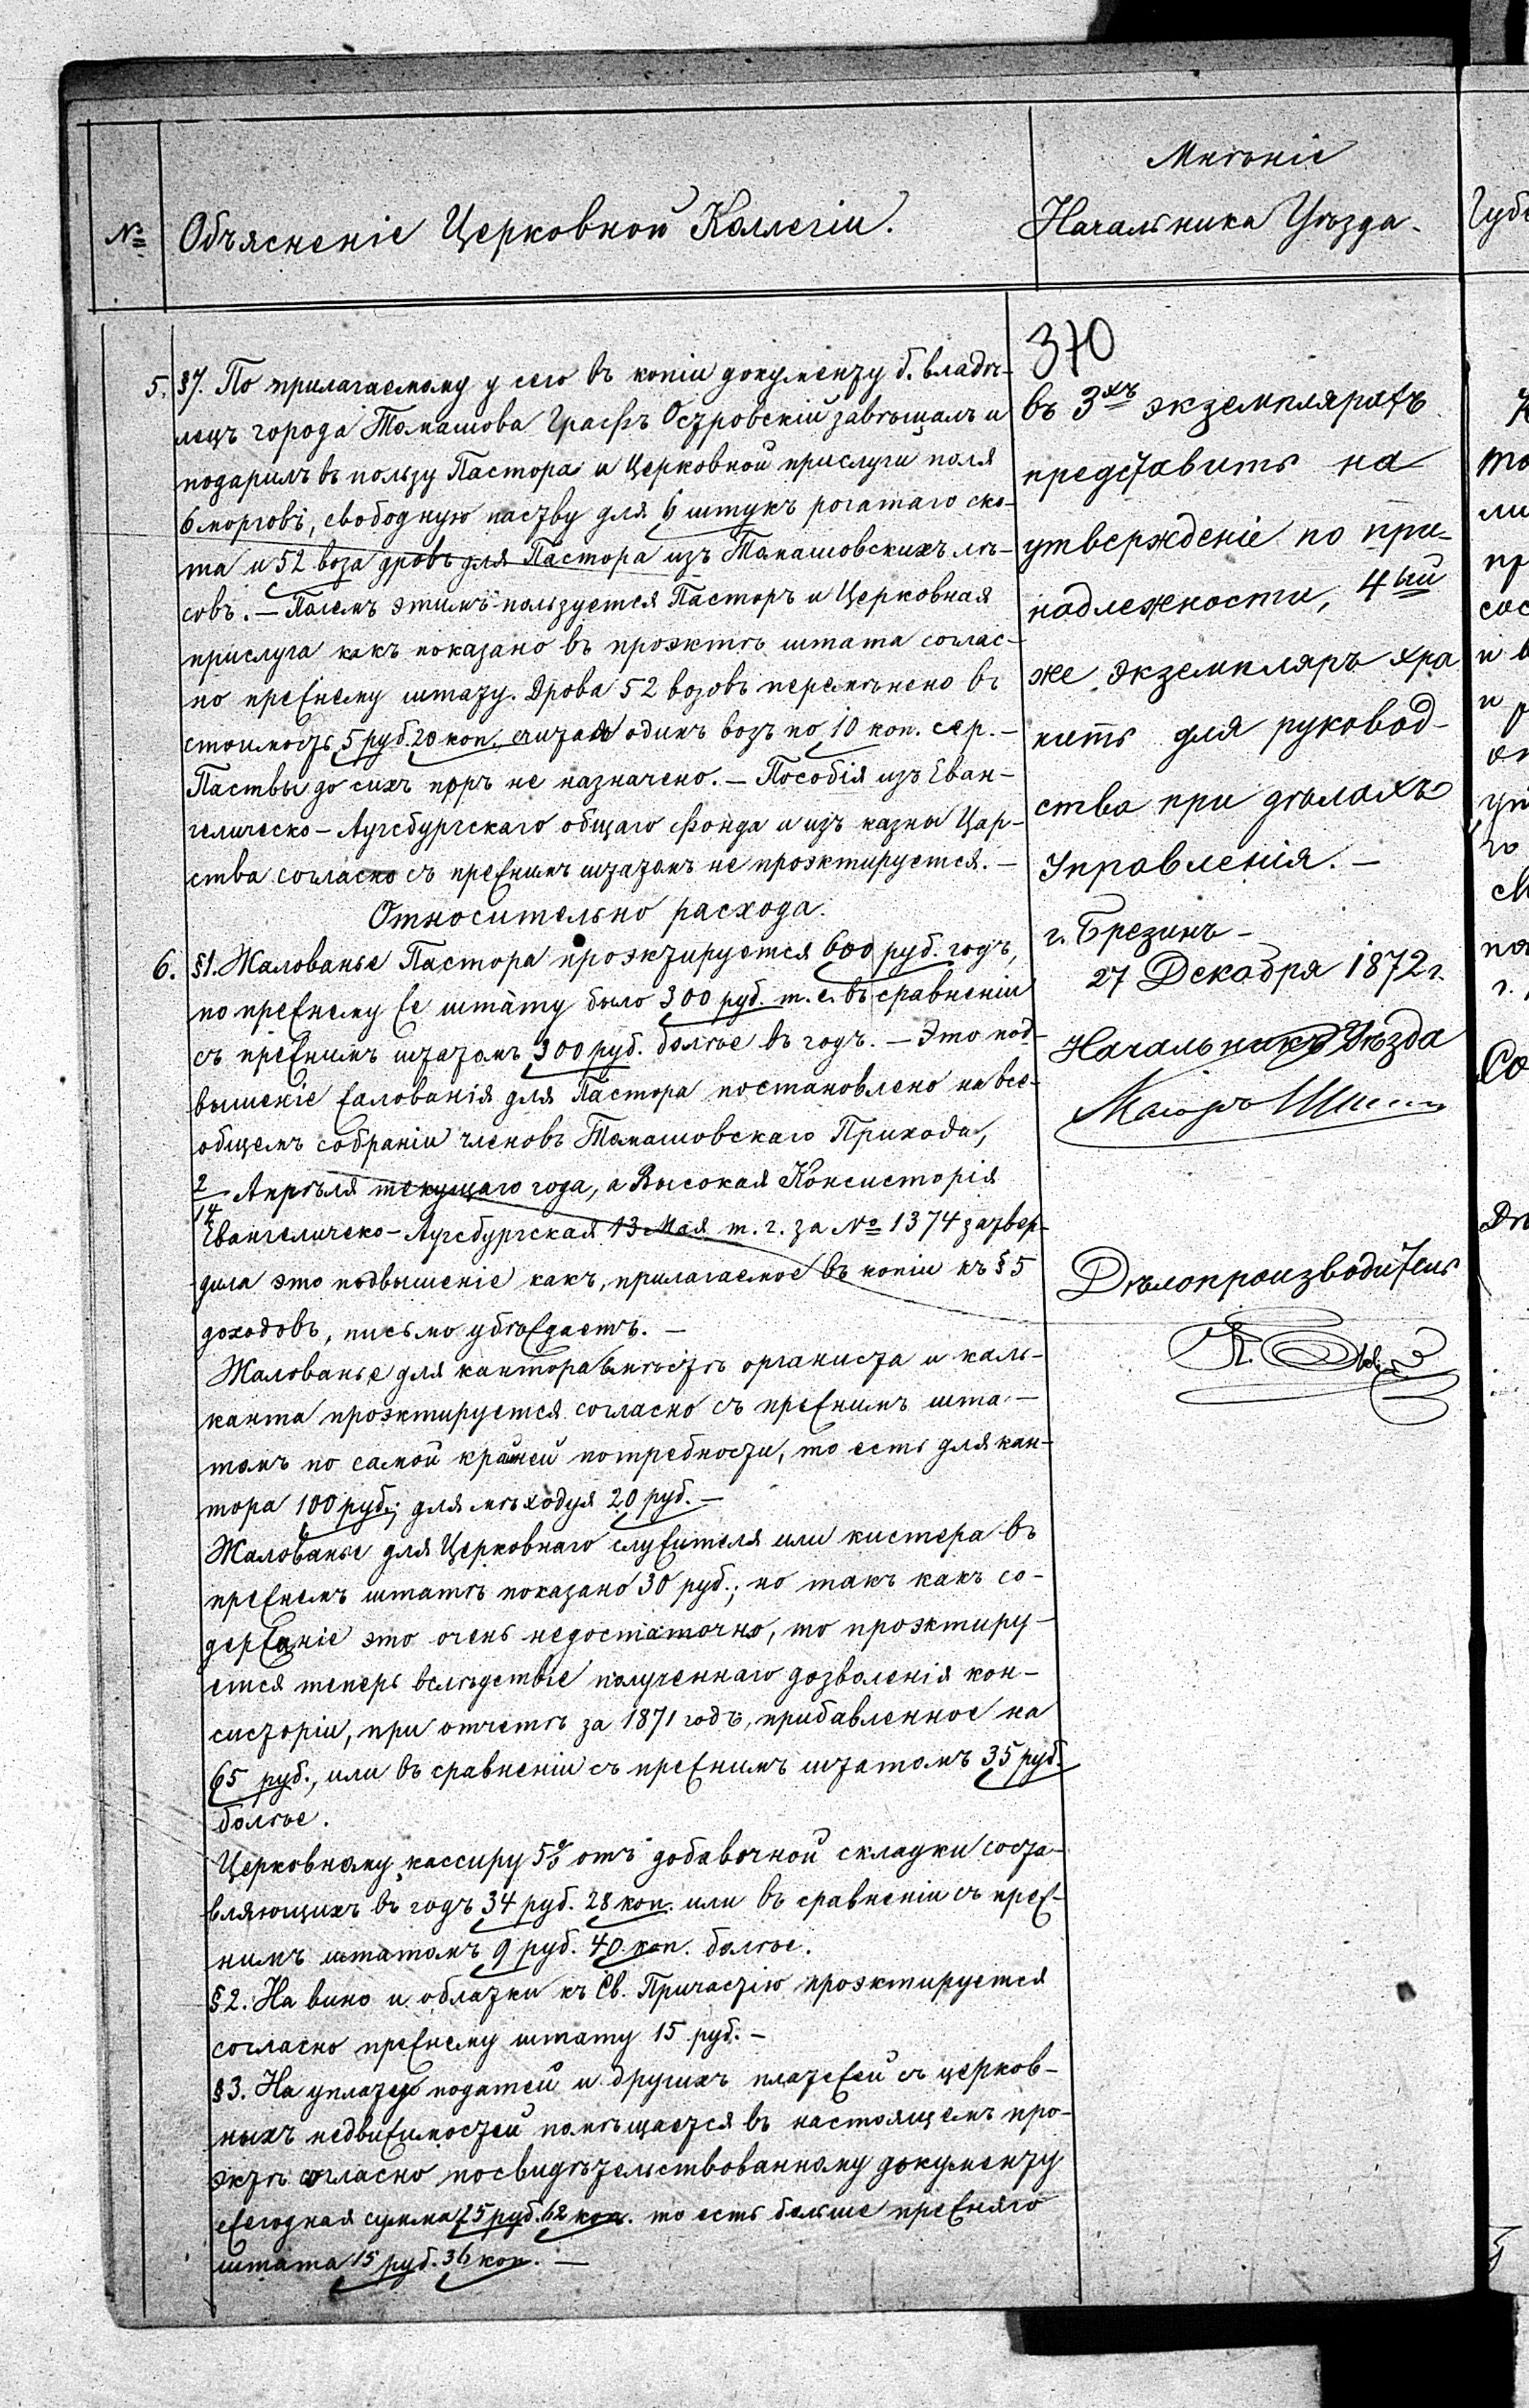 №
Объясненіе Церковной Коллегіи.
Мнѣніе
Начальника Уѣзда.
5. §7. По прилагаемому у сего въ копіи документу б. владѣ-
лецъ города Томашова Графъ Островскій завѣщалъ и
подарилъ въ пользу Пастора и Церковной прислуги поля
6 морговъ, свободную паству для 6 штукъ рогатаго ско-
та и 52 воза дровъ для Пастора изъ Томашовскихъ лѣ-
совъ. — Полемъ этимъ пользуется Пасторъ и Церковная
прислуга какъ показано въ проэктѣ штата соглас-
но прежнему штату. Дрова 52 возовъ перемѣнено въ
стоимость 5 руб. 20 коп. считая одинъ возъ по 10 коп. сер. —
Паствы до сихъ поръ не назначено. — Пособія изъ Еван-
гелическо-Аугсбургскаго общаго фонда и изъ казны Цар-
ства согласно съ прежнимъ штатомъ не проэктируется. —
Относительно расхода.
6. §1. Жалованье Пастора проэктируется 600 руб. годъ,
по прежнему же штату было 300 руб. т. е. въ сравненіи
съ прежнимъ штатомъ 300 руб. болѣе въ годъ. — Это под-
вышеніе жалованія для Пастора постановлено на все-
общемъ собраніи членовъ Томашовскаго Прихода,
2/14 Апрѣля текущаго года, а Высокая Консисторія
Евангеличеко-Аугсбургская 13 Мая т. г. за № 1374 затвер-
дила это подвышеніе какъ, прилагаемое въ копіи къ §5
доходовъ, письмо убѣждаетъ. —
Жалованье для кантора вмѣстѣ органиста и каль-
канта проэктируется согласно съ прежнимъ шта-
томъ по самой крайней потребности, то есть для кан-
тора 100 руб.; для мѣходуя 20 руб. —
Жалованье для Церковнаго служителя или кистера въ
прежнемъ штатѣ показано 30 руб.; но такъ какъ со-
держаніе это очень недостаточно, то проэктиру-
ется теперь велѣдствіе полученнаго дозволенія кон-
систоріи, при отчетѣ за 1871 годъ, прибавленное на
65 руб., или въ сравненіи съ прежнимъ штатомъ 35 руб.
болѣе.
Церковному кассиру 5% отъ добавочной складки соста-
вляющихъ въ годъ 34 руб. 28 коп. или въ сравненіи съ преж-
нимъ штатомъ 9 руб. 40 коп. болѣе.
§2. На вино и облатки къ Св. Причастію проэктируется
согласно прежнему штату 15 руб. —
§3. На уплату податей и другихъ платежей съ церков-
ныхъ недвижимостей помѣщается въ настоящемъ про-
эктѣ согласно посвидѣтельствованному документу
ежегодная сумма 25 руб. 62 коп. то есть больше прежняго
штата 15 руб. 36 коп. —
370
въ 3хъ экземплярахъ
представить на
утвержденіе по при-
надлежности, 4ый
же экземпляръ хра
нить для руковод-
ства при дѣлахъ
Управленія. —
г. Брезинъ —
27 Декабря 1872 г.
Начальникъ Уѣзда
Маіоръ
Дѣлопроизводитель